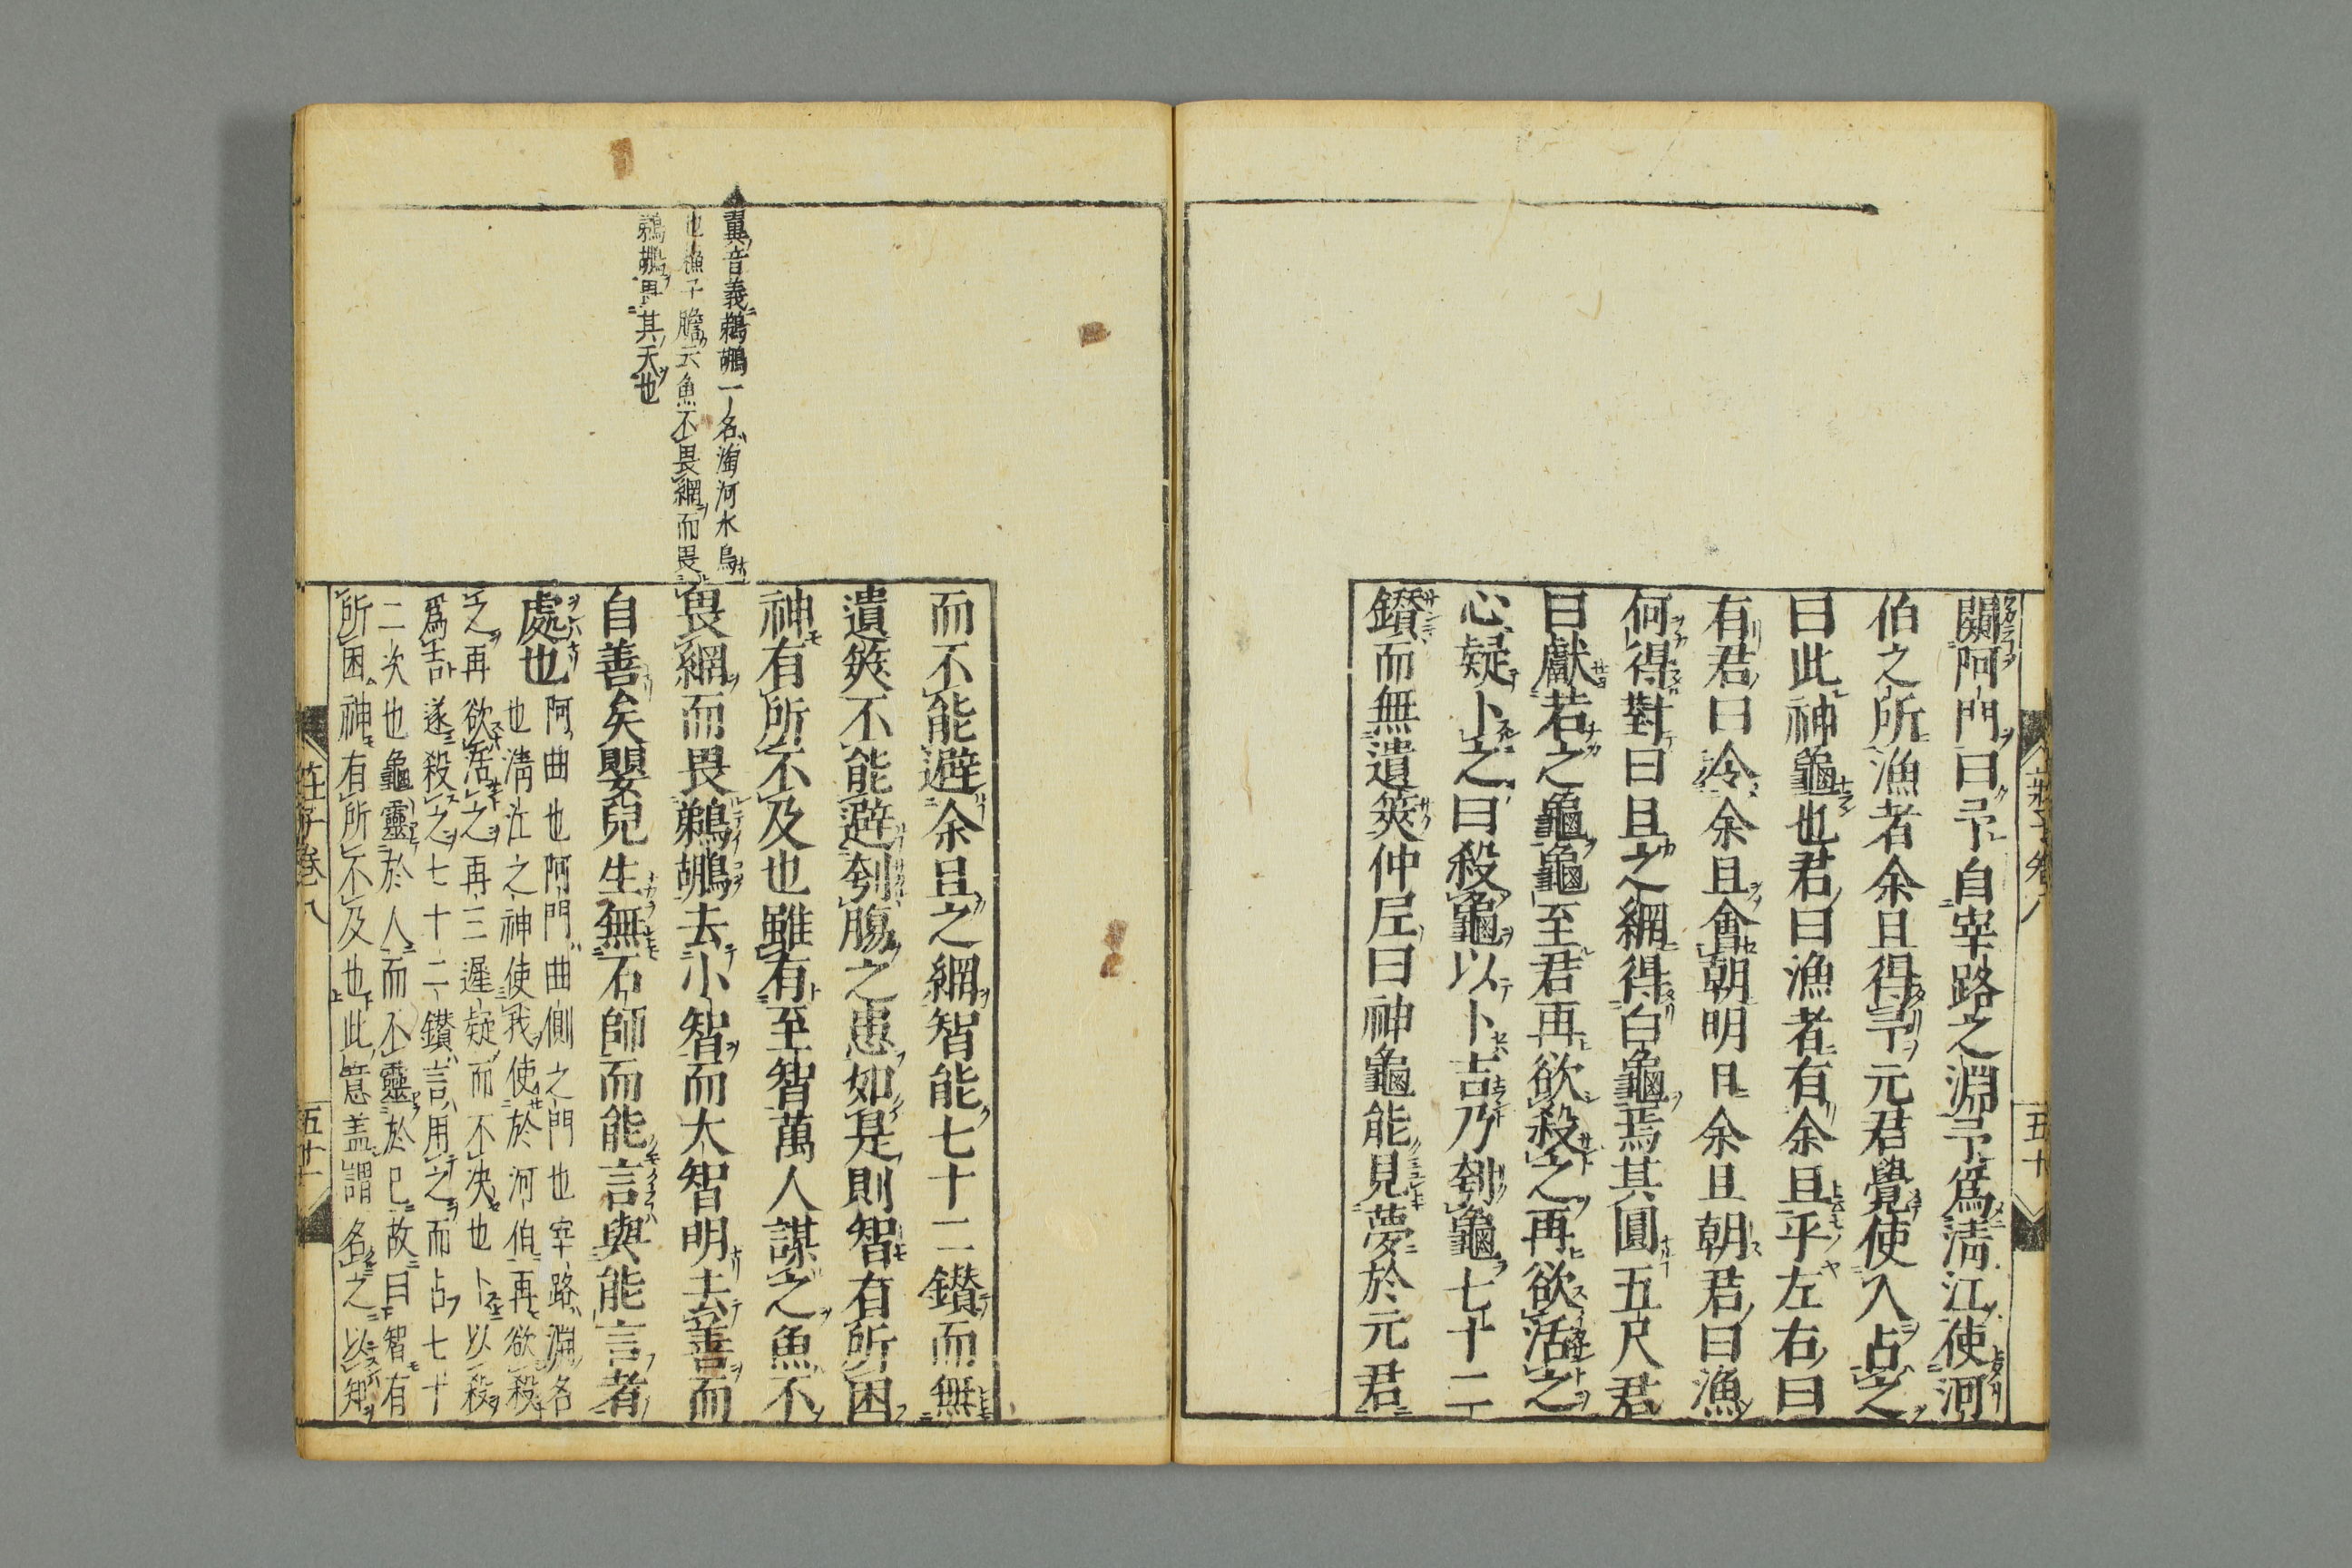 莊子卷八
五十
闚阿門曰予自宰路之淵予爲淸江使河
伯之所漁者余且得予元君覺使人占之
曰此神龜也君曰漁者有余且乎左右曰
有君曰泠余且會朝明日余且朝君曰漁
何得對曰且之網得白龜焉其圓五尺君
曰獻若之龜龜至君再欲殺之再欲活之
心疑卜之曰殺龜以卜吉乃刳龜七十二
鑚而無遺筴仲尼曰神龜能見夢於元君
而不能避余且之網智能七十二鑚而無
遺筴不能避刳腸之患如是則智有所困
神有所不及也雖有至智萬人謀之魚不
畏網而畏鵜鶘去小智而大智明去善而
自善矣嬰兒生無石師而能言與能言者
處也
阿曲也阿門曲側之門也宰路淵名
也淸江之神使我使於河伯再欲殺
之再欲活之再三遲疑而不决也卜以殺
爲吉遂殺之七十二鑚言用之而占七十
二次也龜靈於人而不靈於已故曰智有
所困神有所不及也此意盖謂名之以知
翼音義鵜鶘一名淘河水鳥
也漁子膽云魚不畏網而畏
鵜鶘畏其天也
莊子卷八
五十一